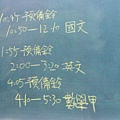 10:45 預備鈴
10:50-12:10 國文
1:55 預備鈴
2:00-3:20 英文
4:05 預備鈴
4:10-5:30 數學甲